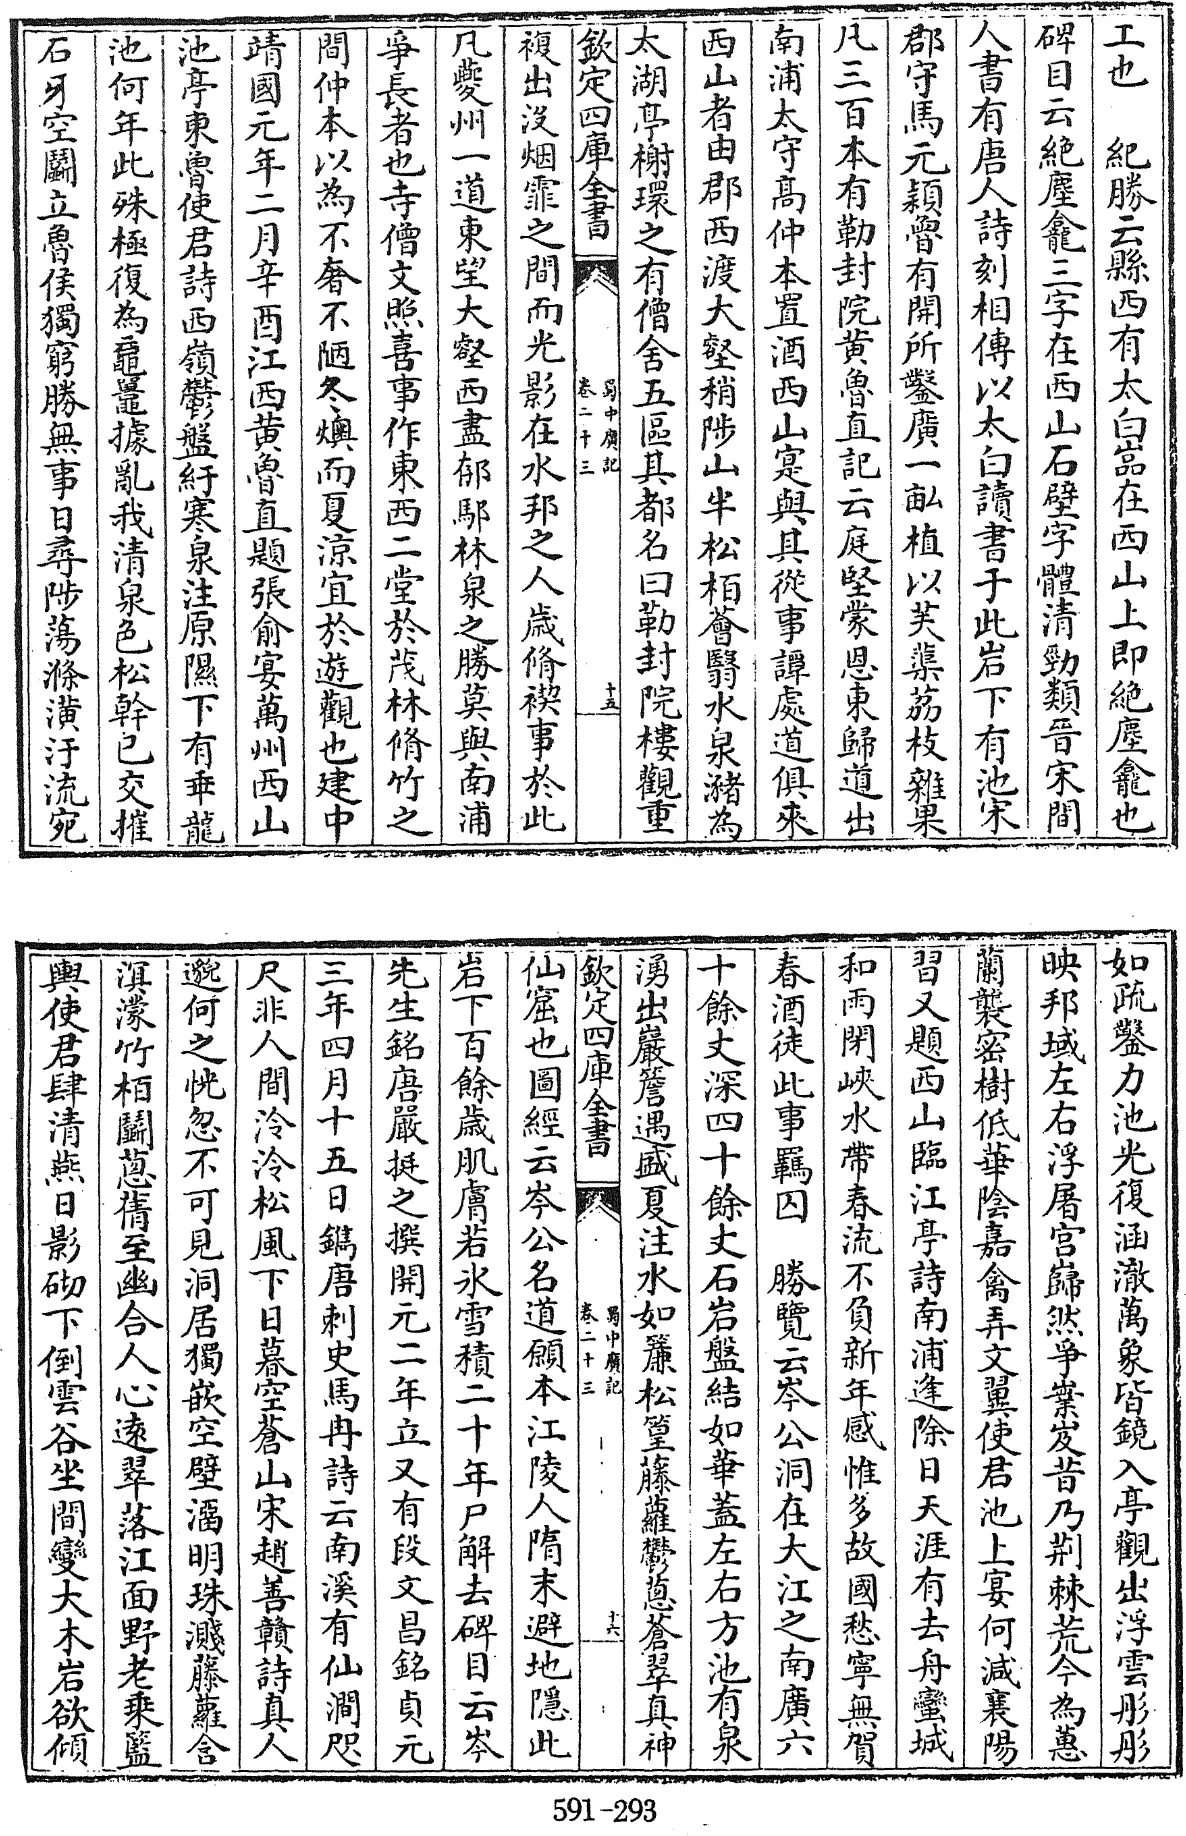 工也　紀勝云縣西有太白嵓在西山上即絶塵龕也
碑目云絶塵龕三字在西山石壁字體清勁類晉宋間
人書有唐人詩刻相傳以太白讀書于此岩下有池宋
郡守馬元潁魯有開所鑿廣一畝植以芙蕖荔枝雜果
凡三百本有勒封院黄魯直記云庭堅蒙恩東歸道出
南浦太守髙仲本置酒西山寔與其從事譚處道俱來
西山者由郡西渡大壑稍陟山半松栢薈翳水泉瀦為
太湖亭榭環之有僧舍五區其都名曰勒封院樓觀重
欽定四庫全書
蜀中廣記
卷二十三
十五
複出没烟霏之間而光影在水邦之人歳脩禊事於此
凡夔州一道東望大壑西盡郁鄢林泉之勝莫與南浦
爭長者也寺僧文照喜事作東西二堂於茂林脩竹之
間仲本以為不奢不陋冬燠而夏涼宜於遊觀也建中
靖國元年二月辛酉江西黄魯直題張俞宴萬州西山
池亭東魯使君詩西嶺鬱盤紆寒泉注原隰下有垂龍
池何年此殊極復為黿鼉據亂我清泉色松幹已交摧
石牙空鬬立魯侯獨窮勝無事日尋陟蕩滌潢汙流宛
如疏鑿力池光復涵澈萬象皆鏡入亭觀出浮雲彤彤
映邦域左右浮屠宫巋然爭業岌昔乃荆棘荒今為蕙
蘭襲密樹低華陰嘉禽弄文翼使君池上宴何減襄陽
習又題西山臨江亭詩南浦逢除日天涯有去舟蠻城
和雨閉峽水帶春流不負新年感惟多故國愁寧無賀
春酒徒此事羈囚　勝覽云岑公洞在大江之南廣六
十餘丈深四十餘丈石岩盤結如華蓋左右方池有泉
湧出巖簷遇盛夏注水如簾松篁藤蘿鬱葱蒼翠真神
欽定四庫全書
蜀中廣記
卷二十三
十六
仙窟也圖經云岑公名道願本江陵人隋末避地隱此
岩下百餘歳肌膚若氷雪積二十年尸解去碑目云岑
先生銘唐嚴挺之撰開元二年立又有段文昌銘貞元
三年四月十五日鐫唐刺史馬冉詩云南溪有仙澗咫
尺非人間泠泠松風下日暮空蒼山宋趙善贛詩真人
邈何之恍忽不可見洞居獨嵌空壁溜明珠濺藤蘿含
溟濛竹栢鬬葱蒨至幽合人心遠翠落江面野老乗籃
輿使君肆清燕日影砌下倒雲谷坐間變大木岩欲傾
591-293